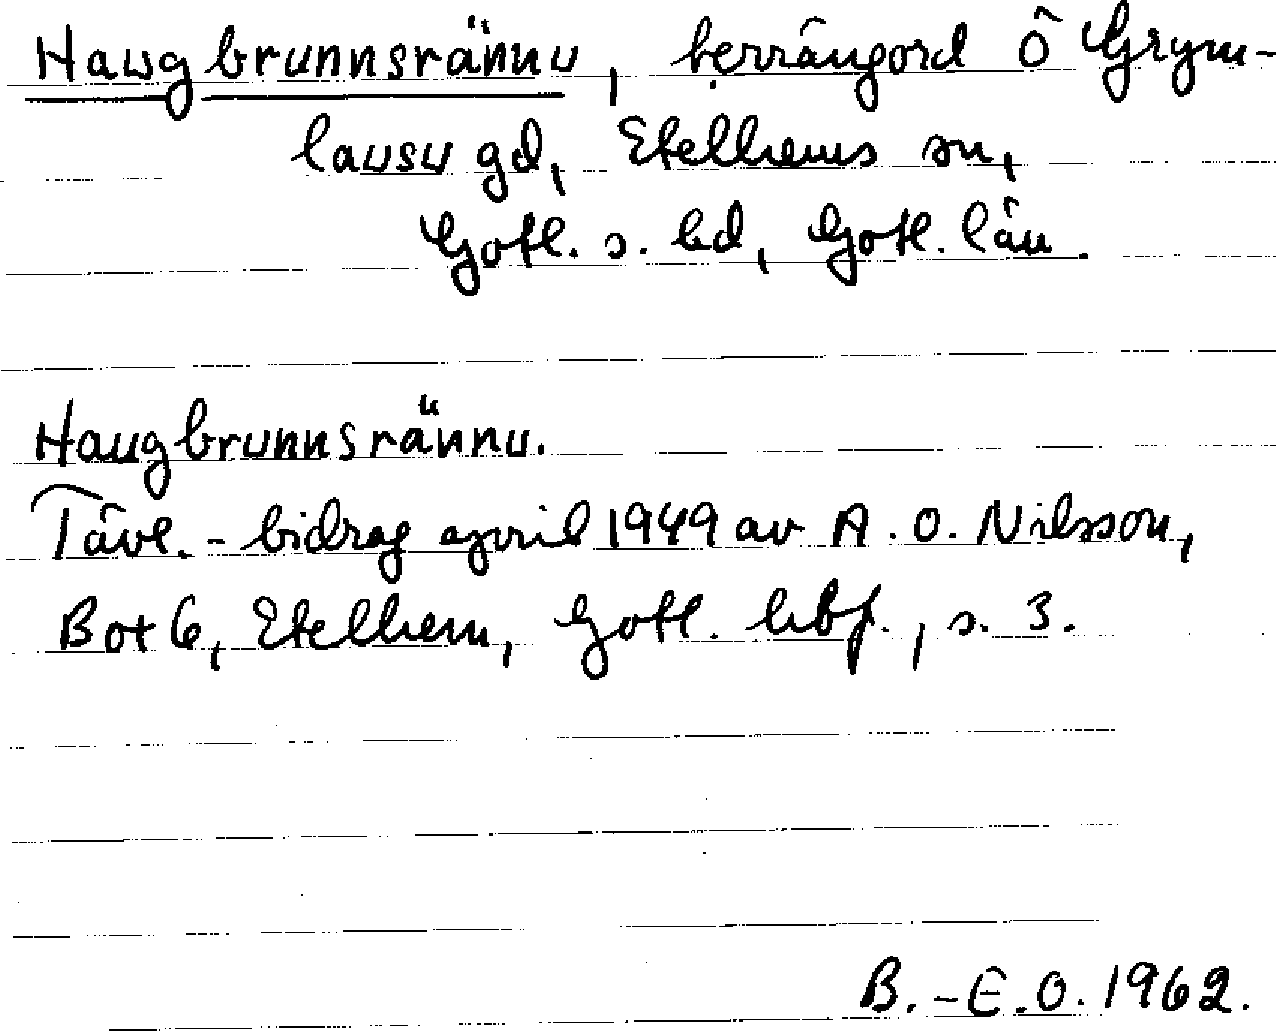 Haugbrunnsrännu, terrängord Ô Grym-
lausu gd, Etelhems sn,
Gotl. s. hd, Gotl. län.
Haugbrunnsrännu.
Tävl.-bidrag april 1949 av A. O. Nilsson,
Box 6, Etelhem, Gotl. hbf., s. 3.
B.-E.O. 1962.